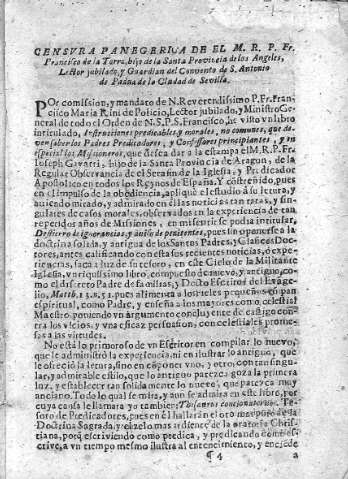 CENSVRA PANEGERICA DE EL M. R. P. Fr.
Francisco de la Torre, hijo de la Santa Provincia de los Angeles,
Lector jubilado, y Guardian del Convento de S. Antonio
de Padua de la Ciudad de Sevilla.
POr comission, y mandato de N. Reverendissimo P. Fr. Fran-
cisco Maria Rini de Policio, Lector jubilado, y Ministro Ge-
neral de todo el Orden de N. S. P. S. Francisco, he visto vn libro
intitulado, Instrucciones predicables, y morales, no comunes, que de-
ven saber los Padres Predicadores, y Confessores principiantes, y en
especial los Missioneros, que dessea dar a la estampa el M. R. P. Fr.
Ioseph Gavarri, hijo de la Santa Provincia de Aragon, de la
Regular Observancia del Serafin de la Iglesia, y Predicador
Apostolico en todos los Reynos de España. Y constreñido, pues
en el impulso de la obediencia, apliquè el estudio à su letura, y
aviendo mirado, y admirado en èl las noticias tan raras, y sin-
gulares de casos morales, observados en la experiencia de tan
repetidos años de Missiones, en mi sentir se podia intitular,
Destierro de ignorancias, y aviso de penitentes, pues sin oponerse à la
doctrina solida, y antigua de los Santos Padres, y Clasicos Doc-
tores, antes calificando con estas sus recientes noticias, ò expe-
riencias, saca à luz de su tesoro, en este Cielo de la Militante
Iglesia, vn riquissimo libro, compuesto de nuevo, y antiguo, como
el discreto Padre de familias, y Docto Escritor del Evange-
lio, Matth. 13. v. 52. pues alimenta à los fieles pequeños en pan
espiritual, como Padre, y enseña à los mayores como celestial
Maestro, poniendo vn argumento concluyente de castigo con-
tra los vicios, y vna eficaz persuasion, con celestiales prome-
sas à las virtudes.
No està lo primoroso de vn Escritor en compilar lo nuevo,
que le administrò la experiencia, ni en ilustrar lo antiguo, que
le ofreciò la letura, sino en exponer vno, y otro, con tan singu-
lar, y admirable estilo, que lo antiguo parezca goza la primera
luz, y establecer tan solidamente lo nuevo, que parezca muy
anciano. Todo lo qual se mira, y aun se admira en este libro, por
cuya causa le llamara yo tambien: Thesaurus concionatorum. Te-
soro de Predicadores, pues en èl hallaràn el oro mas puro de la
Doctrina Sagrada, y el zelo mas ardiente de la oratoria Chris-
tiana, porq̃ escriviendo como predica, y predicando como es-
crive, à vn tiempo mesmo ilustra al entendimiento, y enciende
¶ 4 a